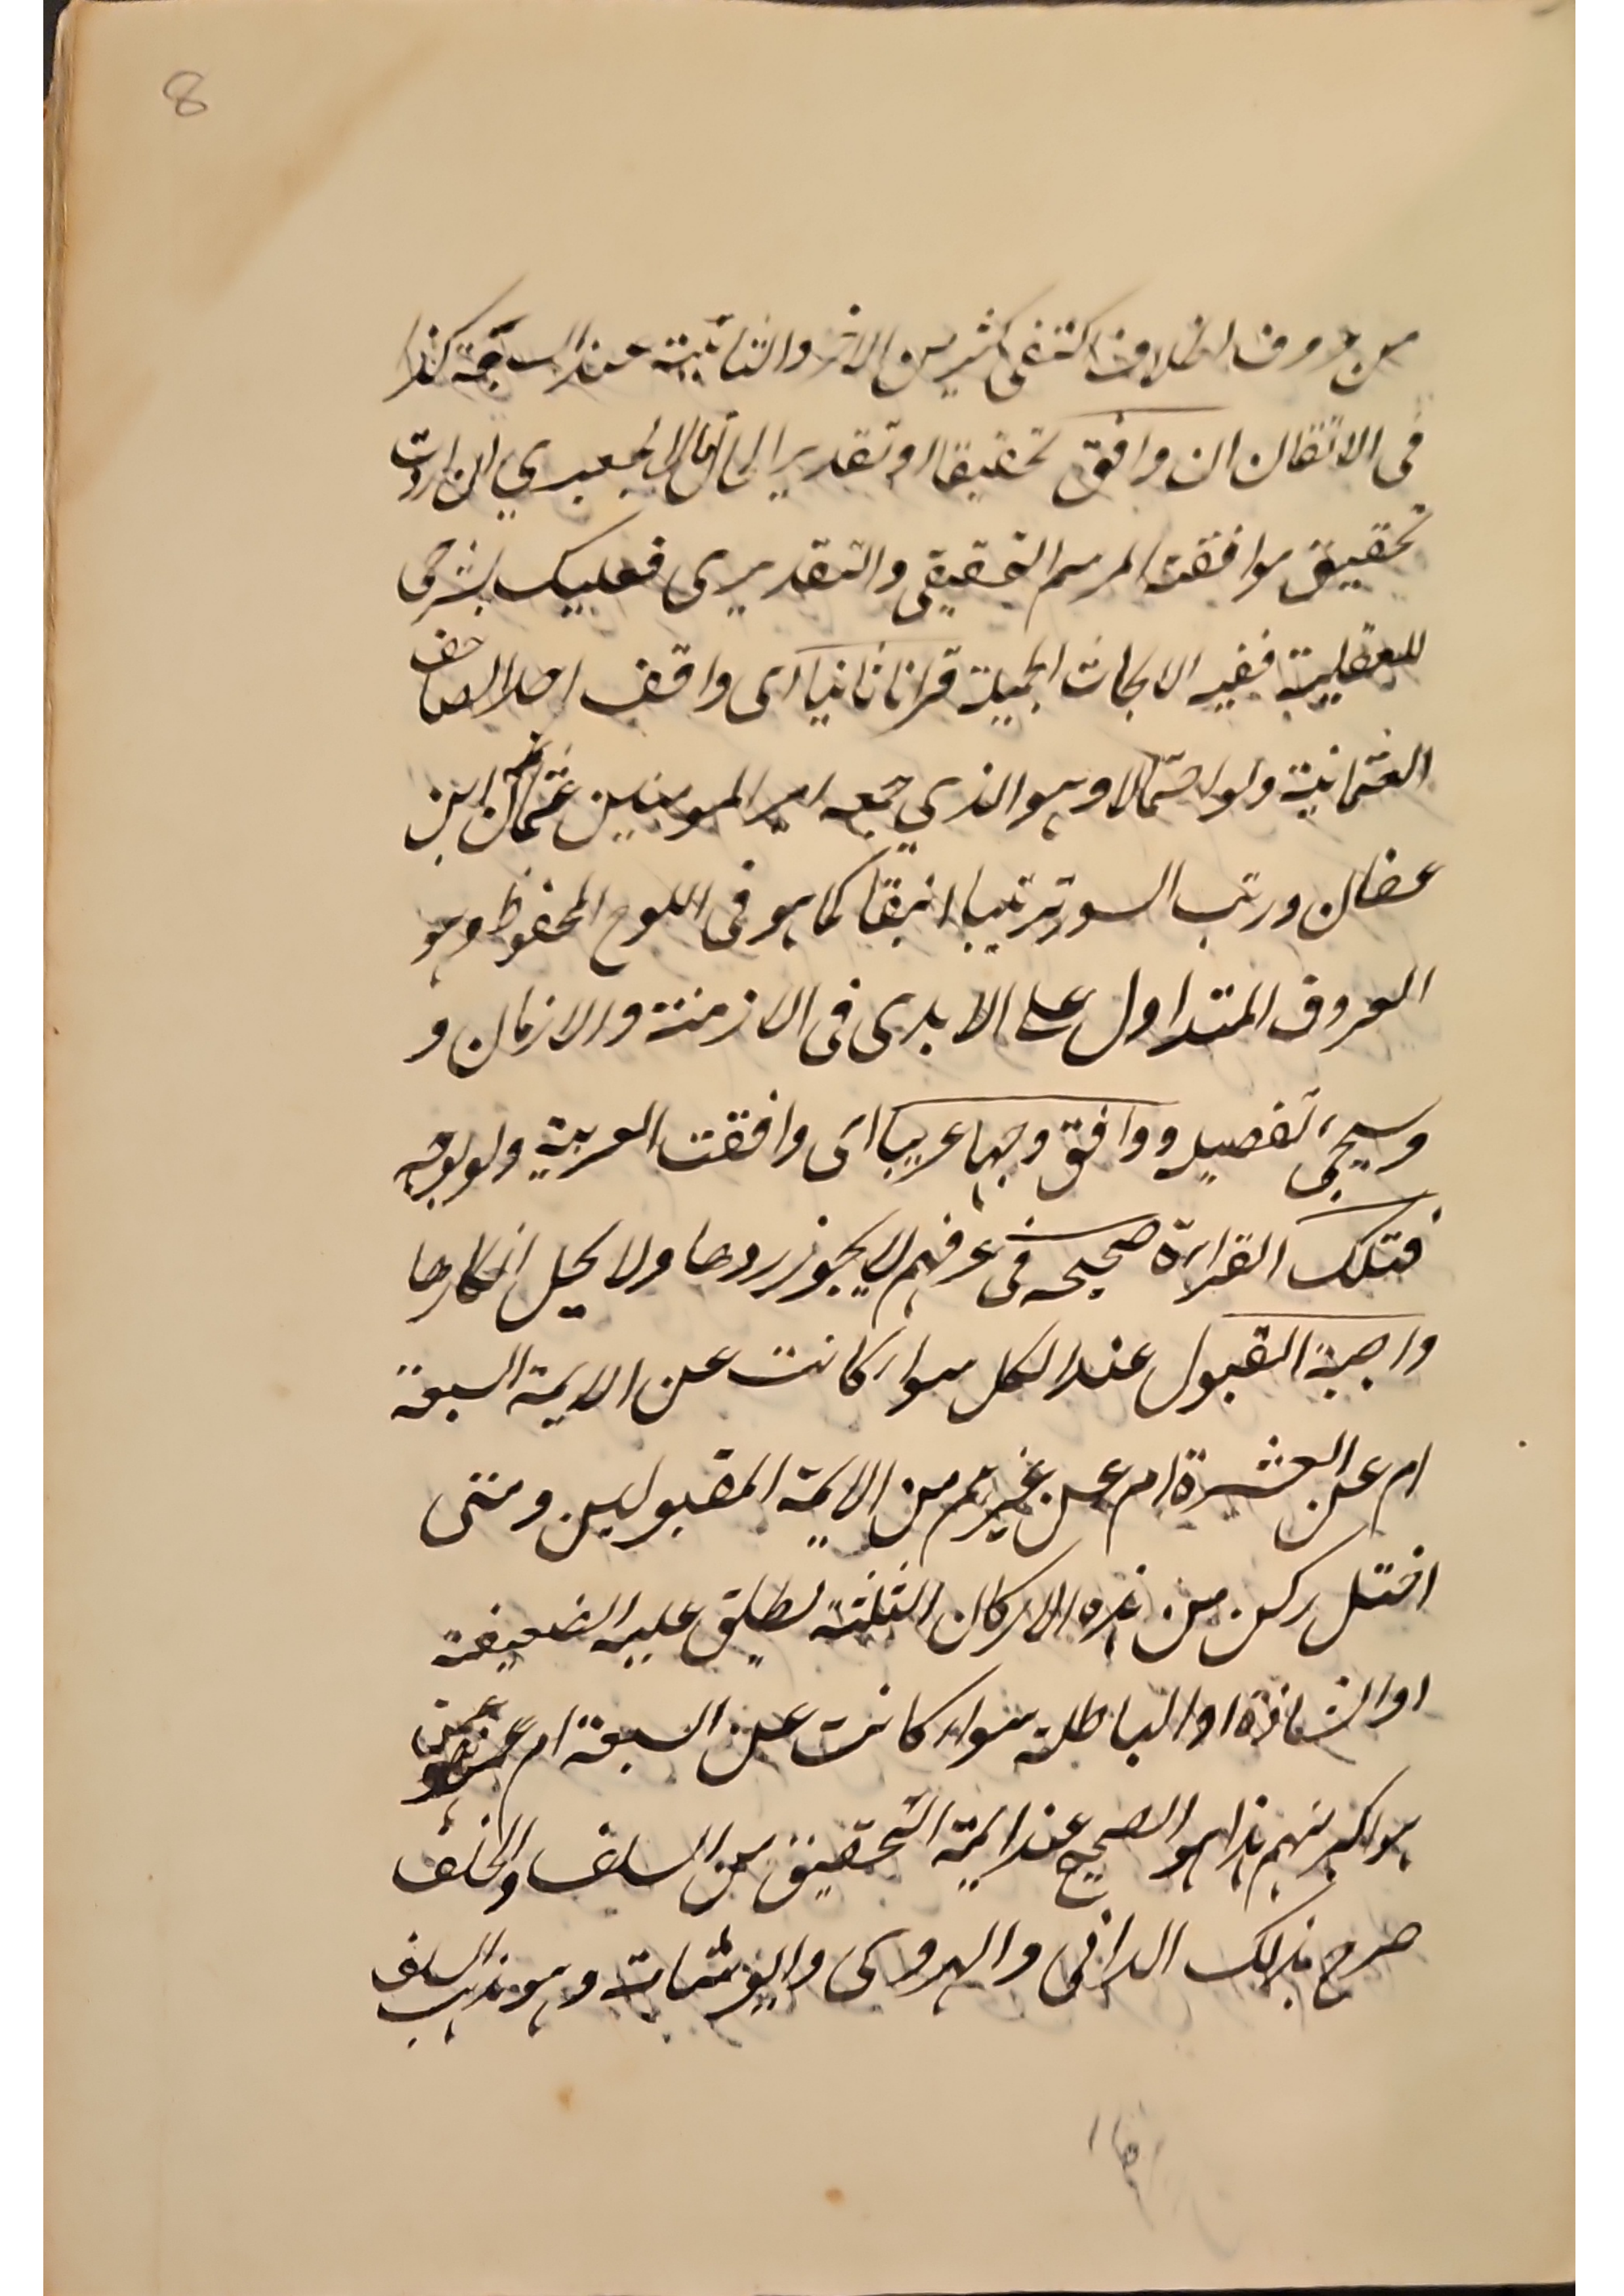 8
من حروف الخلاف اكتفى كثير من الاخر والثانية عند السبعة كذا
فى الاتقان ان وافق تحقيقا او تقديرا قال الجعبري ان اردت
تحقيق موافقت الرسم التحقيقي والتقديرى فعليك بشرحى
للعقلية ففيه الابحاث الجميلة قرانا ثانيا اى وافق احد المصاحف
العثمانية ولو احتمالا وهو الذي جمعه امير المومنين عثمان ابن
عفان ورتب السور ترتيبا انيقا كما هو فى اللوح المحفوظ وهو
المعروف المتداول على الايدى فى الازمنة والازمان و
وسيجىء تفصيله ووافق وجها عربيا اى وافقت العربية ولو بوجه
فتلك القراءة صحيحه فى عرفهم لا يجوز ردها ولا يحل انكارها
واجبة القبول عند الكل سواء كانت عن الايمة السبعة
ام عن العشرة ام عن غيرهم من الايمة المقبولين ومتى
اختل ركن من هذه الاركان الثلثة يطلق عليه الضعيفة
او الشاذة او الباطلة سواء كانت عن السبعة ام عمن
هو اكبر منهم هذا هو الصحيح عند ايمة التحقيق من السلف والخلف
صرح بذلك الدانى والمهدوى وابو شامة وهو مذهب السلف